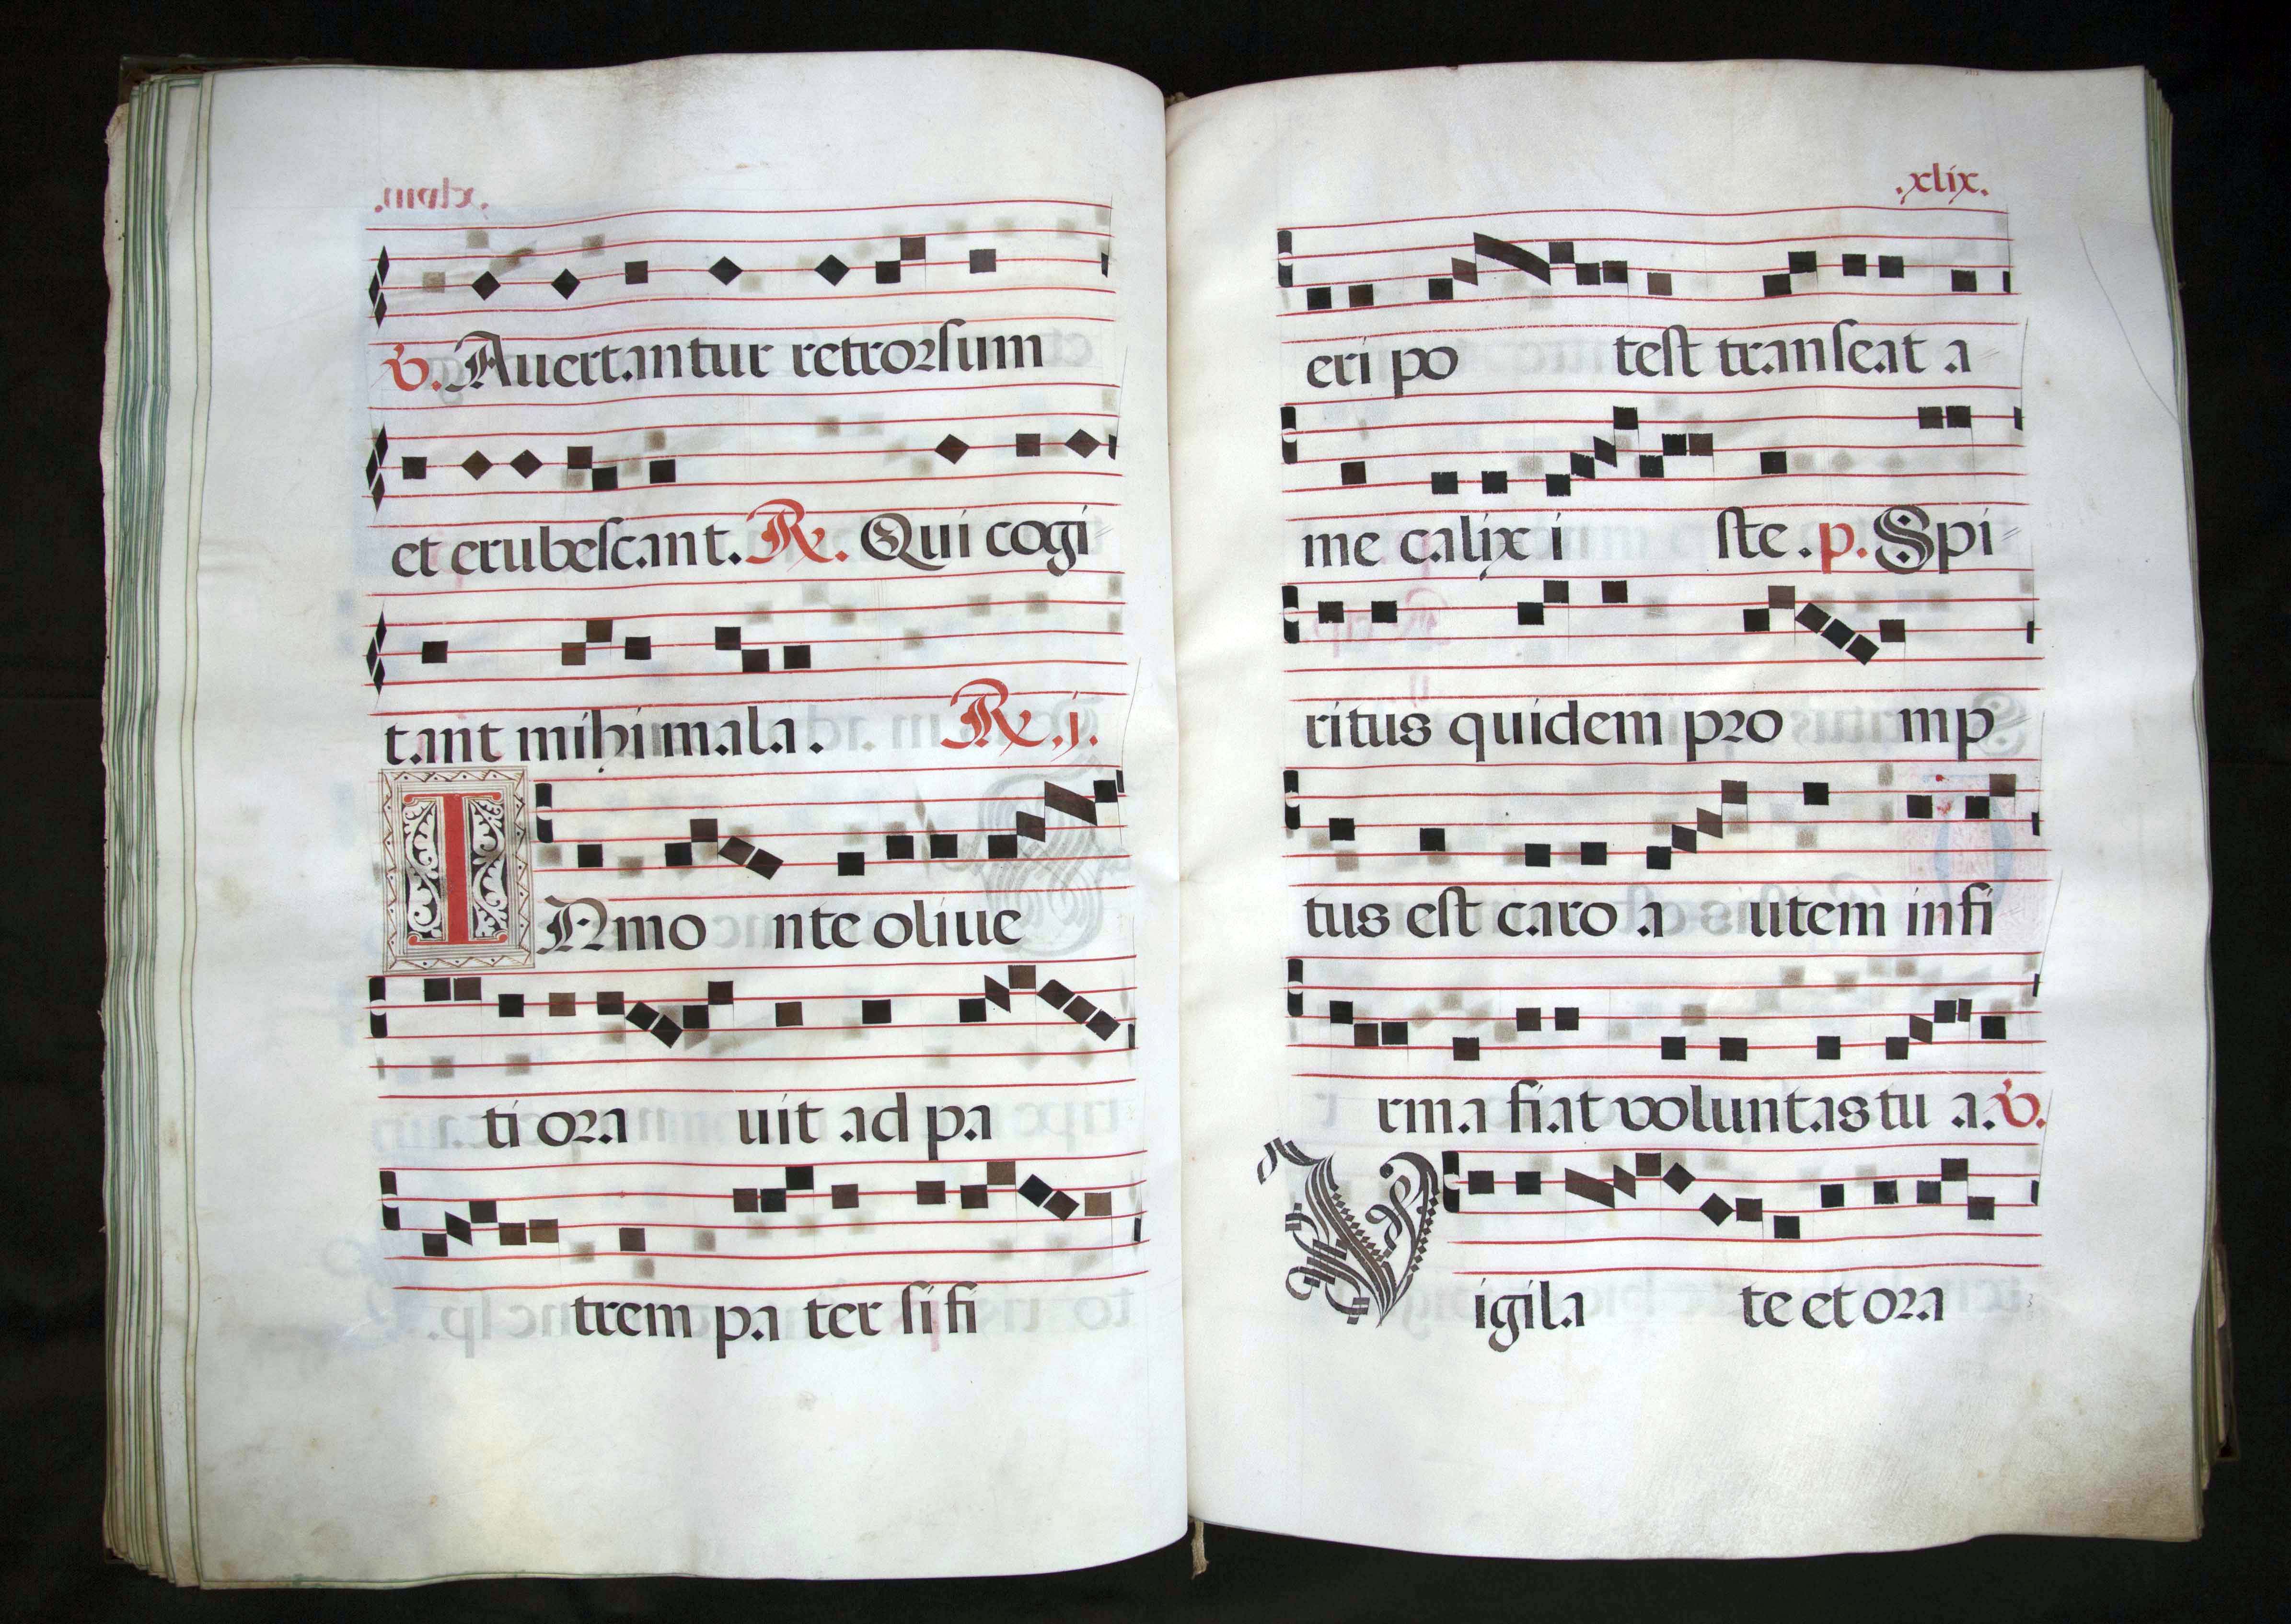 ℣. Auertantur retrorsum
et erubescant. ℟. Qui cogi
tant mihi mala. ℟. j.
IN mo nte oliue
ti ora uit ad pa
trem pa ter si fi
.xlix.
eri po test transeat a
me calix i ste. p. Spi
ritus quidem pro mp
tus est caro a utem infi
rma fiat voluntas tu a. ℣.
Vigila te et ora